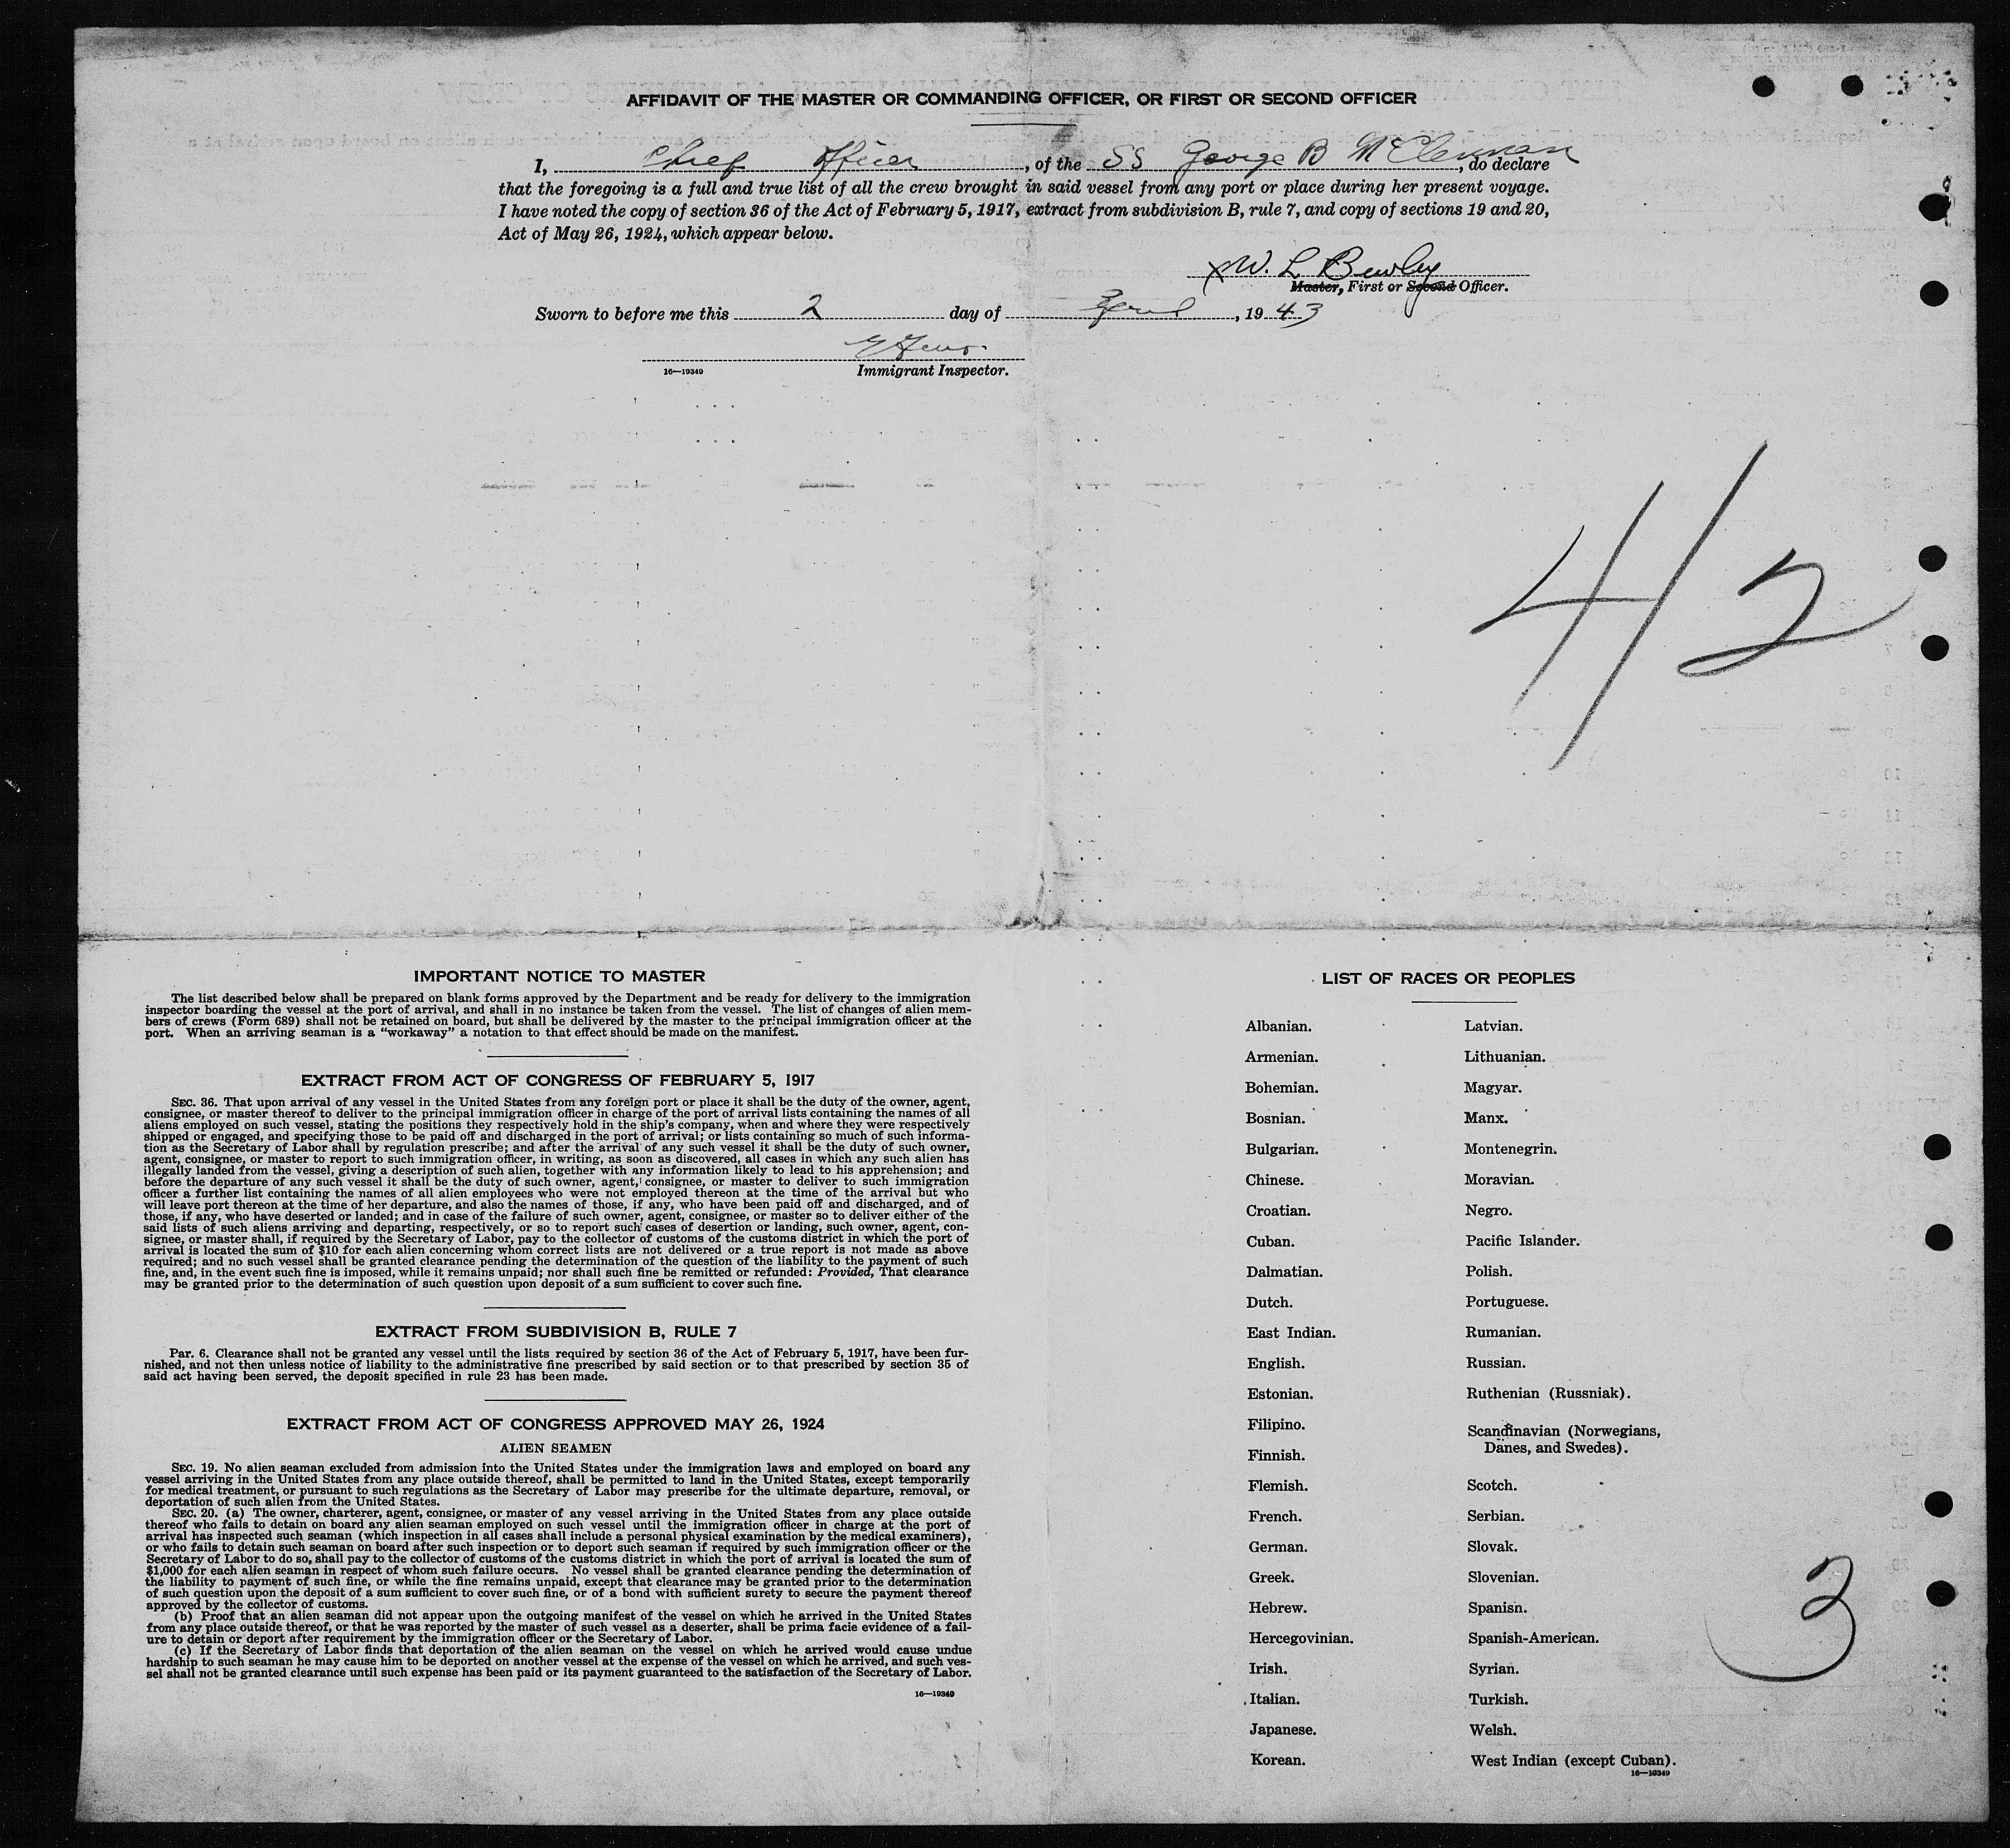 AFFIDAVIT OF THE MASTER OR COMMANDING OFFICER, OR FIRST OR SECOND OFFICER
I, Chief Officer, of the SS George B McClennan, do declare
that the foregoing is a full and true list of all the crew brought in said vessel from any port or place during her present voyage.
I have noted the copy of section 36 of the Act of February 5, 1917, extract from subdivision B, rule 7, and copy of sections 19 and 20,
Act of May 26, 1924, which appear below.
X W. L Bewley
Master, First or Second Officer.
Sworn to before me this 2 day of April, 1943
16—19349 Immigrant Inspector.
4/2
IMPORTANT NOTICE TO MASTER
The list described below shall be prepared on blank forms approved by the Department and be ready for delivery to the immigration
inspector boarding the vessel at the port of arrival, and shall in no instance be taken from the vessel. The list of changes of alien mem-
bers of crews (Form 689) shall not be retained on board, but shall be delivered by the master to the principal immigration officer at the
port. When an arriving seaman is a “workaway” a notation to that effect should be made on the manifest.
EXTRACT FROM ACT OF CONGRESS OF FEBRUARY 5, 1917
SEC. 36. That upon arrival of any vessel in the United States from any foreign port or place it shall be the duty of the owner, agent,
consignee, or master thereof to deliver to the principal immigration officer in charge of the port of arrival lists containing the names of all
aliens employed on such vessel, stating the positions they respectively hold in the ship's company, when and where they were respectively
shipped or engaged, and specifying those to be paid off and discharged in the port of arrival; or lists containing so much of such informa-
tion as the Secretary of Labor shall by regulation prescribe; and after the arrival of any such vessel it shall be the duty of such owner,
agent, consignee, or master to report to such immigration officer, in writing, as soon as discovered, all cases in which any such alien has
illegally landed from the vessel, giving a description of such alien, together with any information likely to lead to his apprehension; and
before the departure of any such vessel it shall be the duty of such owner, agent, consignee, or master to deliver to such immigration
officer a further list containing the names of all alien employees who were not employed thereon at the time of the arrival but who
will leave port thereon at the time of her departure, and also the names of those, if any, who have been paid off and discharged, and of
those, if any, who have deserted or landed; and in case of the failure of such owner, agent, consignee, or master so to deliver either of the
said lists of such aliens arriving and departing, respectively, or so to report such cases of desertion or landing, such owner, agent, con-
signee, or master shall, if required by the Secretary of Labor, pay to the collector of customs of the customs district in which the port of
arrival is located the sum of $10 for each alien concerning whom correct lists are not delivered or a true report is not made as above
required; and no such vessel shall be granted clearance pending the determination of the question of the liability to the payment of such
fine, and, in the event such fine is imposed, while it remains unpaid; nor shall such fine be remitted or refunded: Provided, That clearance
may be granted prior to the determination of such question upon deposit of a sum sufficient to cover such fine.
EXTRACT FROM SUBDIVISION B, RULE 7
Par. 6. Clearance shall not be granted any vessel until the lists required by section 36 of the Act of February 5, 1917, have been fur-
nished, and not then unless notice of liability to the administrative fine prescribed by said section or to that prescribed by section 35 of
said act having been served, the deposit specified in rule 23 has been made.
EXTRACT FROM ACT OF CONGRESS APPROVED MAY 26, 1924
ALIEN SEAMEN
SEC. 19. No alien seaman excluded from admission into the United States under the immigration laws and employed on board any
vessel arriving in the United States from any place outside thereof, shall be permitted to land in the United States, except temporarily
for medical treatment, or pursuant to such regulations as the Secretary of Labor may prescribe for the ultimate departure, removal, or
deportation of such alien from the United States.
SEC. 20. (a) The owner, charterer, agent, consignee, or master of any vessel arriving in the United States from any place outside
thereof who fails to detain on board any alien seaman employed on such vessel until the immigration officer in charge at the port of
arrival has inspected such seaman (which inspection in all cases shall include a personal physical examination by the medical examiners),
or who fails to detain such seaman on board after such inspection or to deport such seaman if required by such immigration officer or the
Secretary of Labor to do so, shall pay to the collector of customs of the customs district in which the port of arrival is located the sum of
$1,000 for each alien seaman in respect of whom such failure occurs. No vessel shall be granted clearance pending the determination of
the liability to payment of such fine, or while the fine remains unpaid, except that clearance may be granted prior to the determination
of such question upon the deposit of a sum sufficient to cover such fine, or of a bond with sufficient surety to secure the payment thereof
approved by the collector of customs.
(b) Proof that an alien seaman did not appear upon the outgoing manifest of the vessel on which he arrived in the United States
from any place outside thereof, or that he was reported by the master of such vessel as a deserter, shall be prima facie evidence of a fail-
ure to detain or deport after requirement by the immigration officer or the Secretary of Labor.
(c) If the Secretary of Labor finds that deportation of the alien seaman on the vessel on which he arrived would cause undue
hardship to such seaman he may cause him to be deported on another vessel at the expense of the vessel on which he arrived, and such ves-
sel shall not be granted clearance until such expense has been paid or its payment guaranteed to the satisfaction of the Secretary of Labor.
16—19349
LIST OF RACES OR PEOPLES
Albanian.
Armenian.
Bohemian.
Bosnian.
Bulgarian.
Chinese.
Croatian.
Cuban.
Dalmatian.
Dutch.
East Indian.
English.
Estonian.
Filipino.
Finnish.
Flemish.
French.
German.
Greek.
Hebrew.
Hercegovinian.
Irish.
Italian.
Japanese.
Korean.
Latvian.
Lithuanian.
Magyar.
Manx.
Montenegrin.
Moravian.
Negro.
Pacific Islander.
Polish.
Portuguese.
Rumanian.
Russian.
Ruthenian (Russniak).
Scandinavian (Norwegians,
Danes, and Swedes).
Scotch.
Serbian.
Slovak.
Slovenian.
Spanish.
Spanish-American.
Syrian.
Turkish.
Welsh.
West Indian (except Cuban).
16—19349
3